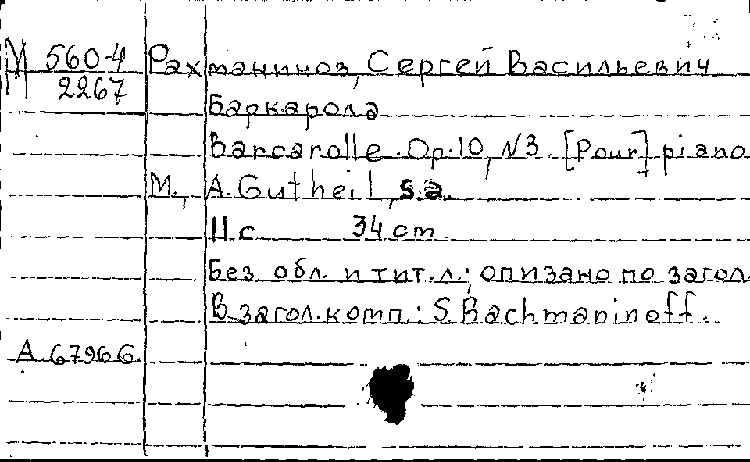 М 560-4 Рахманинов, Сергей Васильевич
2267
Баркарола
Barcarolle. Op.10, N3. [Pour] piano
М., A. Gutheil, s.a.
11 с 34 cm
Без обл. и тит. л.; описано по загол.
В загол. комп.: S. Rachmaninoff.
А 67966